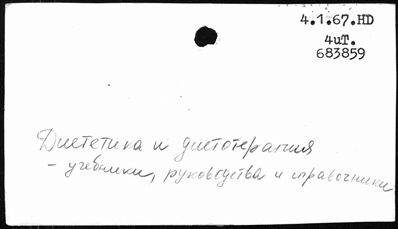 4.1.67.HD
4иТ.
683859
Диетотика и диетотерапия
- учебники, руководства и справочники